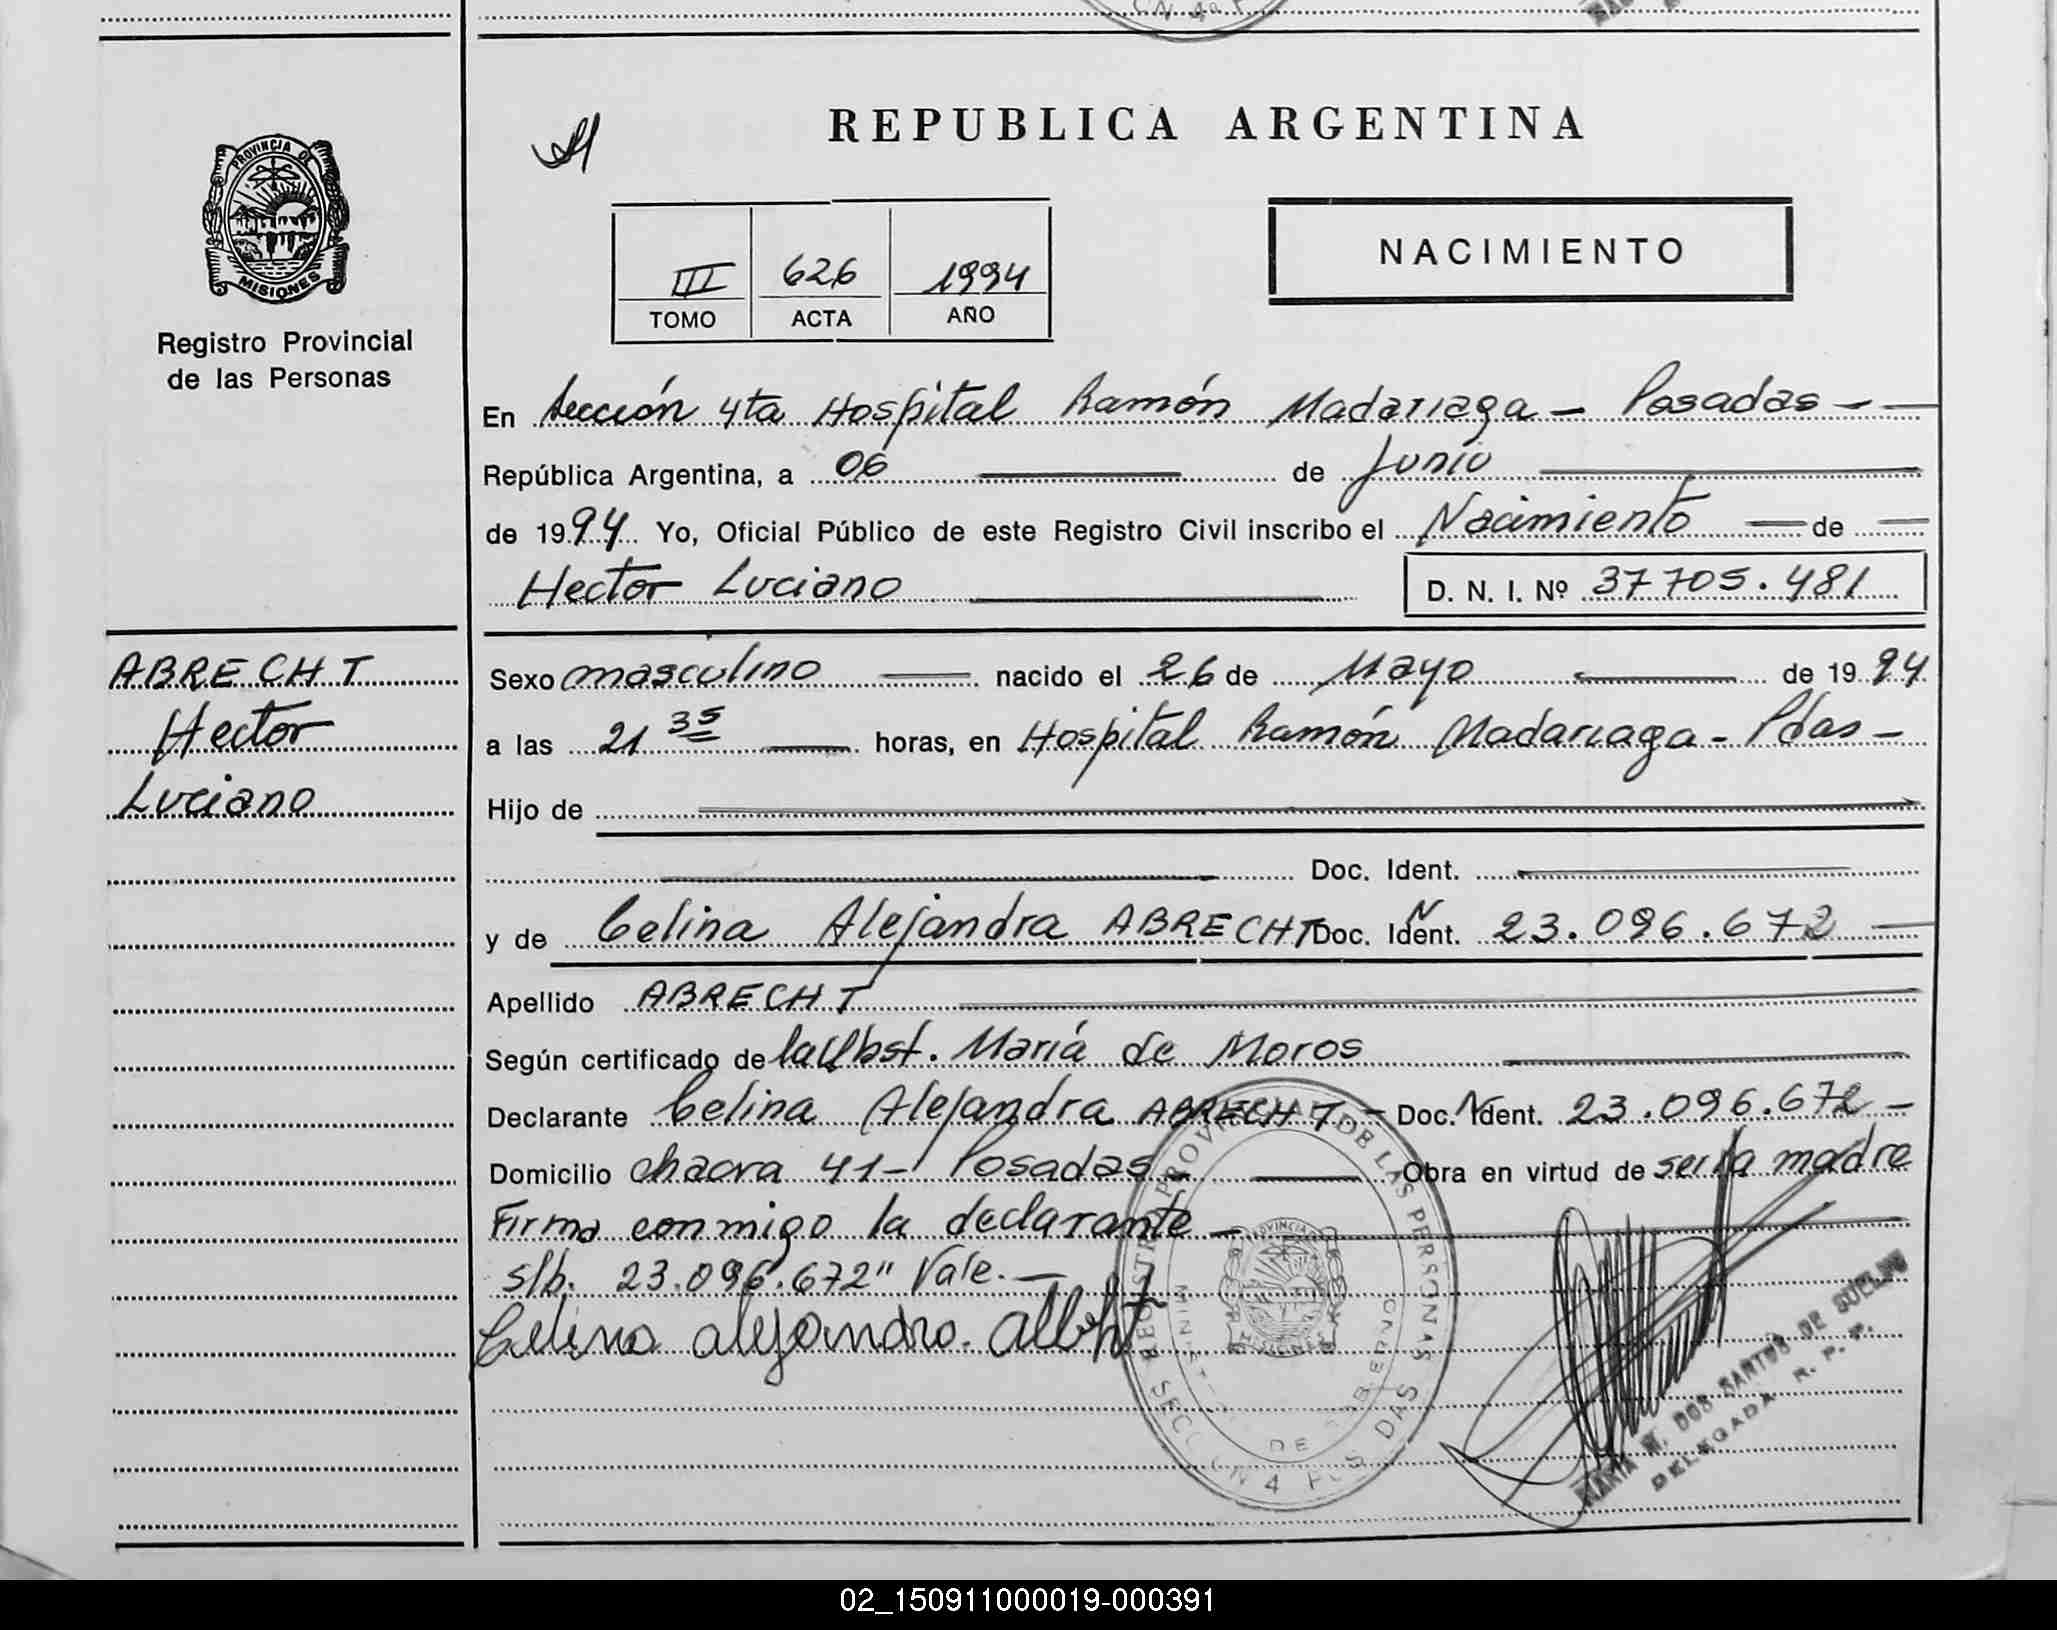 REPUBLICA ARGENTINA
PROVINCIA DE
MISIONES
Registro Provincial
de las Personas
III 626 1994
TOMO ACTA AÑO
NACIMIENTO
En Sección 4ta Hospital Ramón Madariaga - Posadas - -
República Argentina, a 06 de Junio
de 1994 Yo, Oficial Público de este Registro Civil inscribo el Nacimiento de
Hector Luciano D. N. I. Nº 37705.481
ABRECHT
Hector
Luciano
Sexo masculino nacido el 26 de Mayo de 1994
a las 21 35 horas, en Hospital Ramón Madariaga - Pdas -
Hijo de
Doc. Ident.
y de Celina Alejandra ABRECHT Doc. Ident. N 23.096.672
Apellido ABRECHT
Según certificado de la Obst. María de Moros
Declarante Celina Alejandra ABRECHT - Doc. Ident. N 23.096.672 -
Domicilio chacra 41 - Posadas - Obra en virtud de ser la madre
Firma conmigo la declarante -
s/b. 23.096.672" Vale. -
Celina alejandra.
REGISTRO PROVINCIAL DE LAS PERSONAS
MINISTERIO DE GOBIERNO
SECCION 4 POSADAS
PROVINCIA
MISIONES
MARIA M. DOS SANTOS DE
DELEGADA R. P. P.
02_150911000019-000391